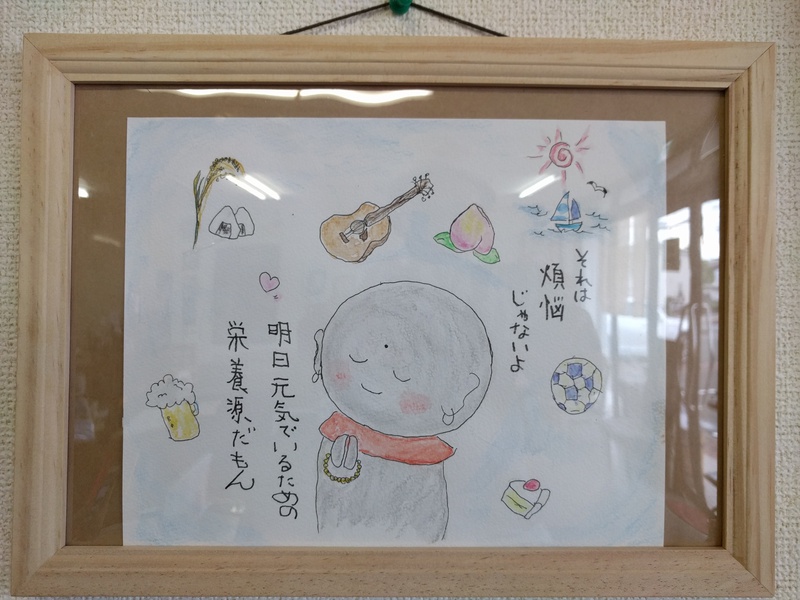 それは
煩悩
じゃないよ
明日元気でいるための
栄養源だもん